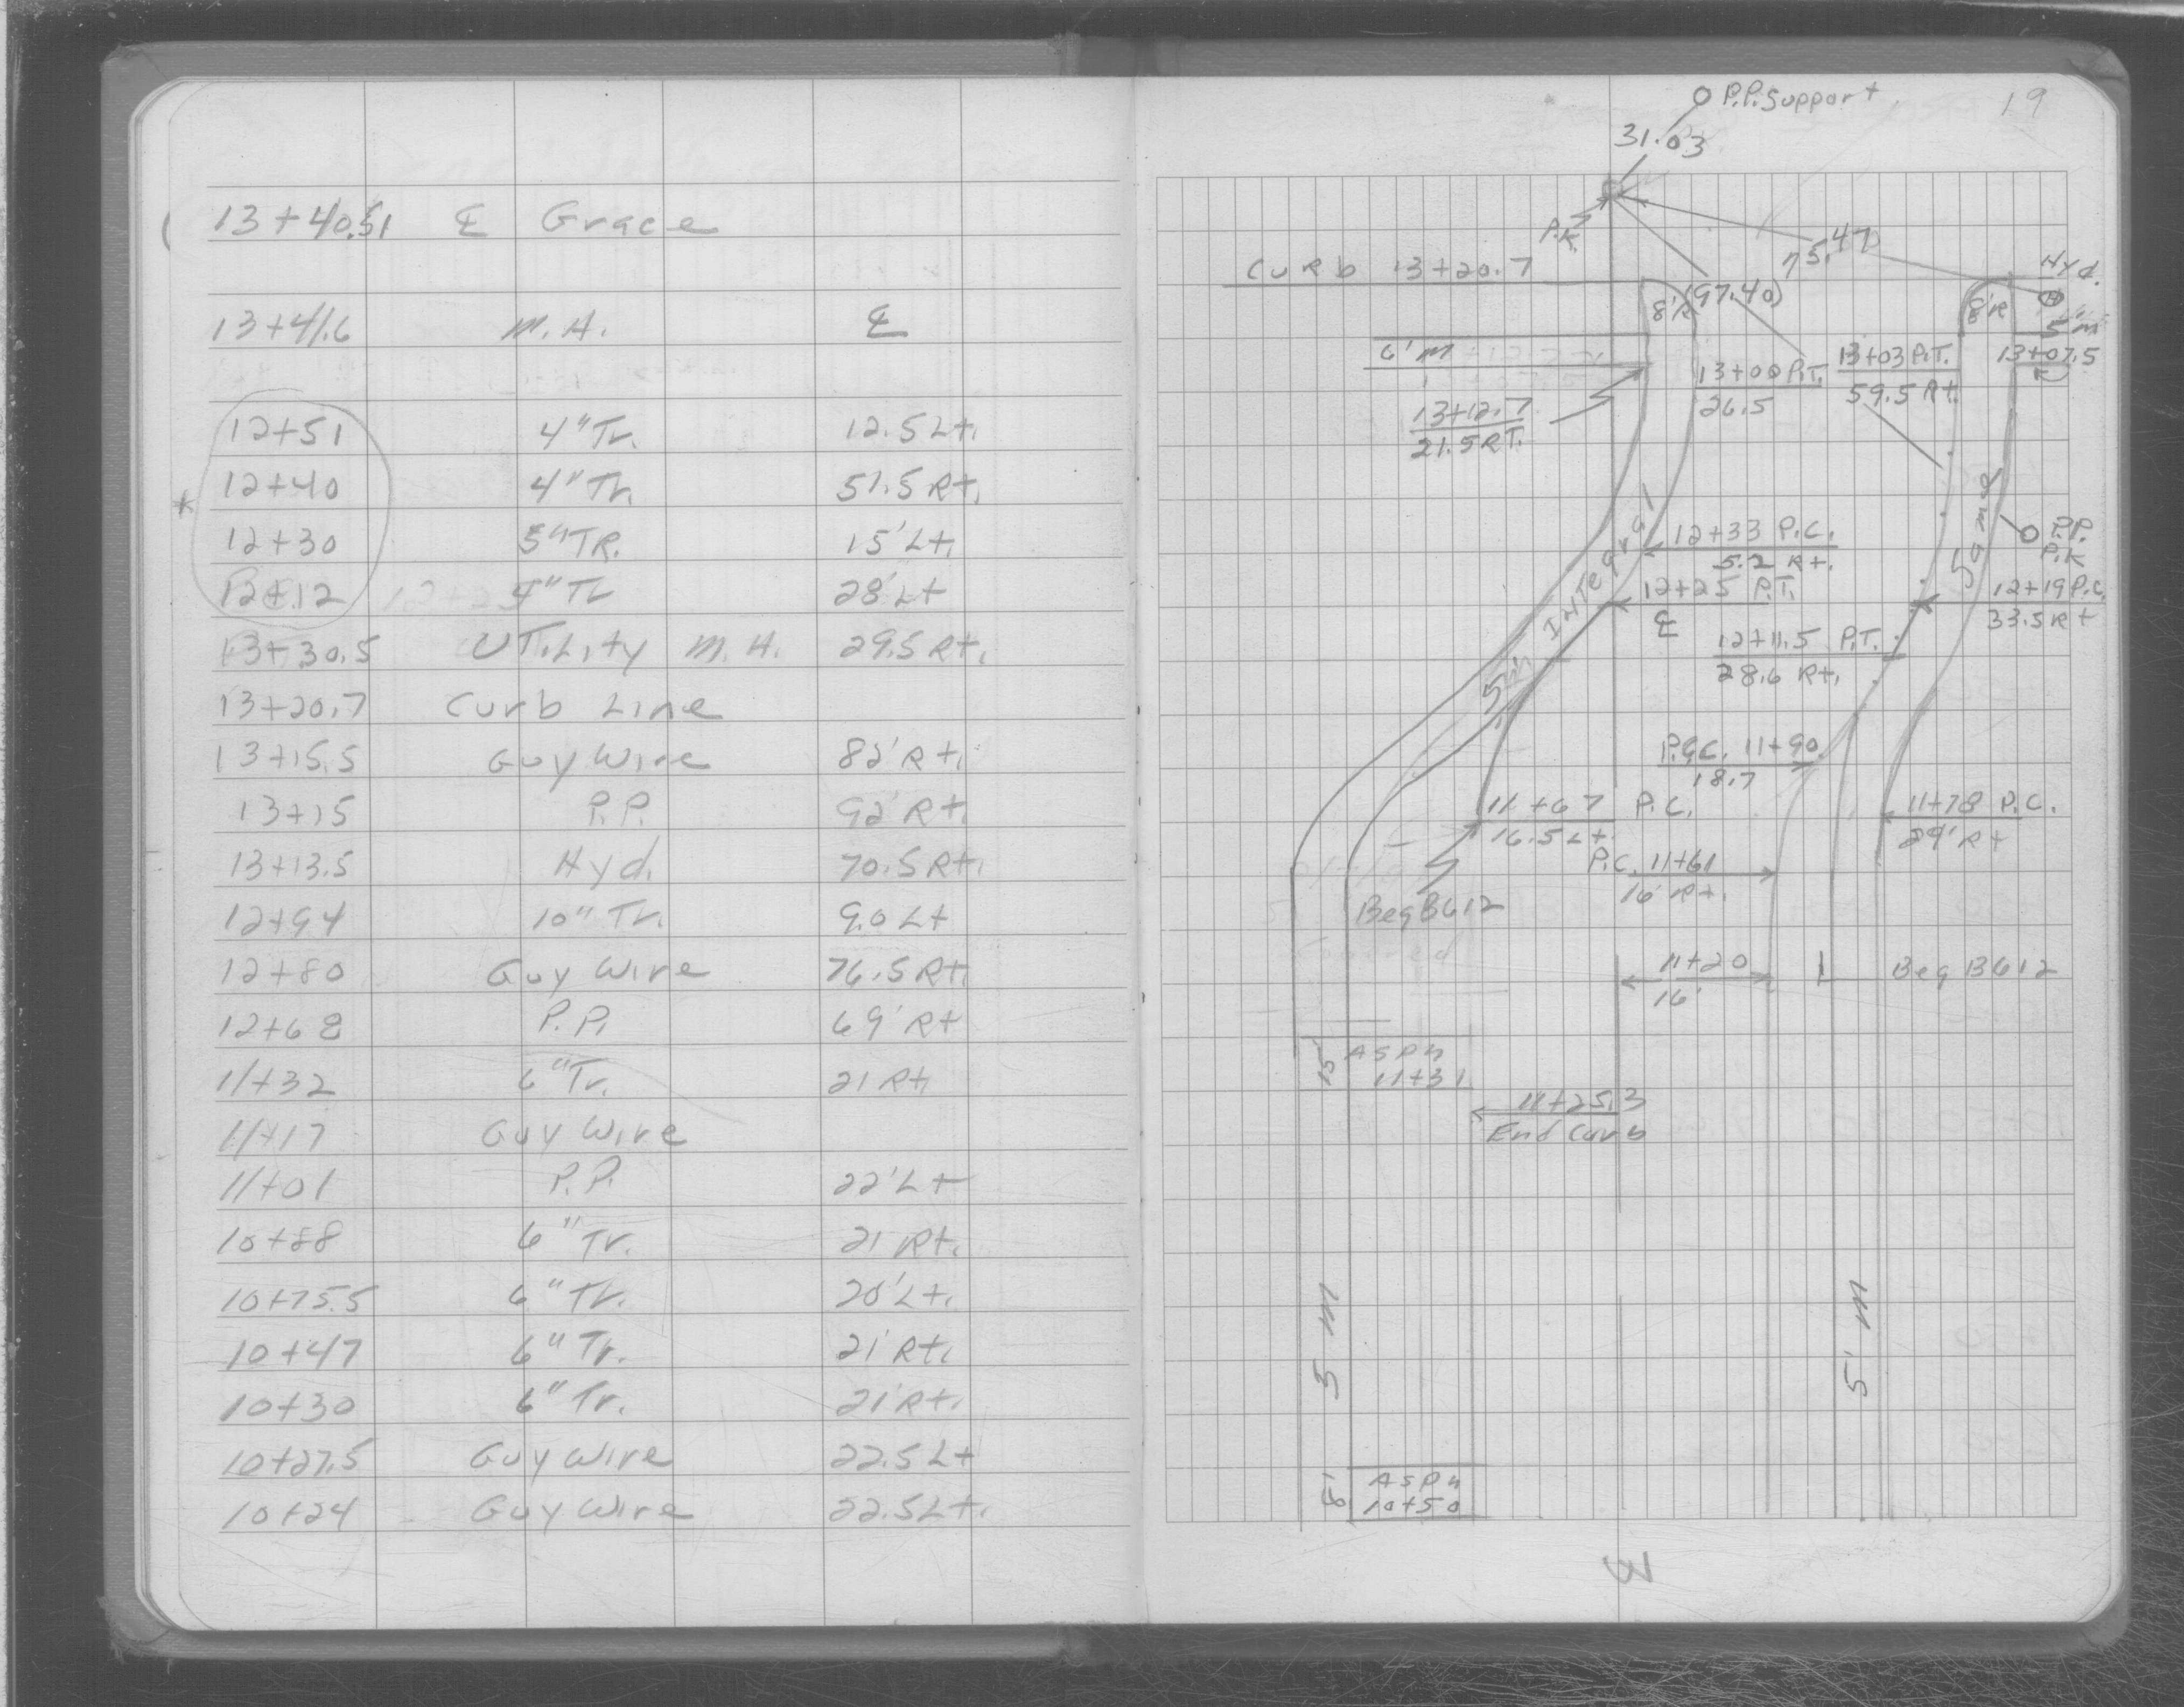 13+40.51 ℄ Grace
13+41.6 M.H. ℄
12+51 4" Tr. 12.5 Lt.
* 12+40 4" Tr. 51.5 Rt.
12+30 5" TR. 15' Lt.
12+12 4" Tr 28' Lt
13+30.5 UTiLity M.H. 29.5 Rt.
13+20.7 Curb Line
13+15.5 Guy Wire 82' Rt.
13+15 P.P. 92' Rt.
13+13.5 Hyd. 70.5 Rt.
12+94 10" Tr. 9.0 Lt
12+80 Guy Wire 76.5 Rt.
12+68 P.P. 69' Rt
11+32 6" Tr. 21 Rt.
11+17 Guy Wire
11+01 P.P. 22' Lt
10+88 6" Tr. 21 Rt.
10+75.5 6" Tr. 20' Lt.
10+47 6" Tr. 21' Rt.
10+30 6" Tr. 21' Rt.
10+27.5 Guy Wire 22.5 Lt
10+24 Guy Wire 22.5 Lt.
19
P.P. Support
31.03
P.K.
75.47
Hyd.
Curb 13+20.7
(97.40)
8'R
8'R
5' m
6' m
13+00 P.T.
26.5
13+03 P.T.
59.5 Rt.
13+07.5
13+12.7
21.5 RT.
12+33 P.C.
5.2 Rt.
P.P.
P.K
5' INTegral
Same
12+25 P.T.
℄
12+19 P.C.
33.5 Rt
12+11.5 P.T.
28.6 Rt.
P.C.C. 11+90
18.7
11+67 P.C.
16.5 Lt.
11+78 P.C.
29' Rt
P.C. 11+61
16' Rt.
Beg B612
11+20
16'
Beg B612
15'
ASPh
11+31
11+25.3
End Curb
5' m
5' m
8'
ASPh
10+50